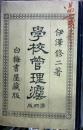 伊澤修二著
學校管理法
白梅書屋藏版